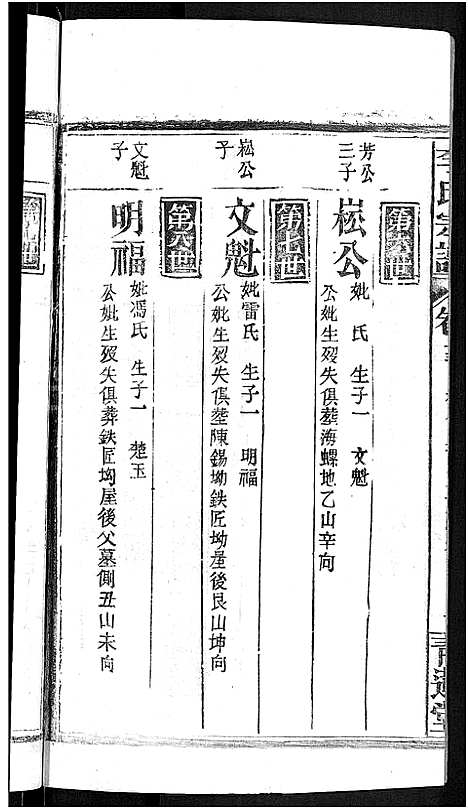 李氏宗譜
第六世
芳公三子
崧公
妣 氏 生子一 文魁
公妣生歿失俱葬海螺地乙山辛向
第七世
崧公子
文魁
妣雷氏 生子一 明福
公妣生歿失俱塟陳錫坳鉄匠坳屋後艮山坤向
第八世
文魁子
明福
妣馮氏 生子一 楚玉
公妣生歿失俱葬鉄匠坳屋後父墓側丑山未向